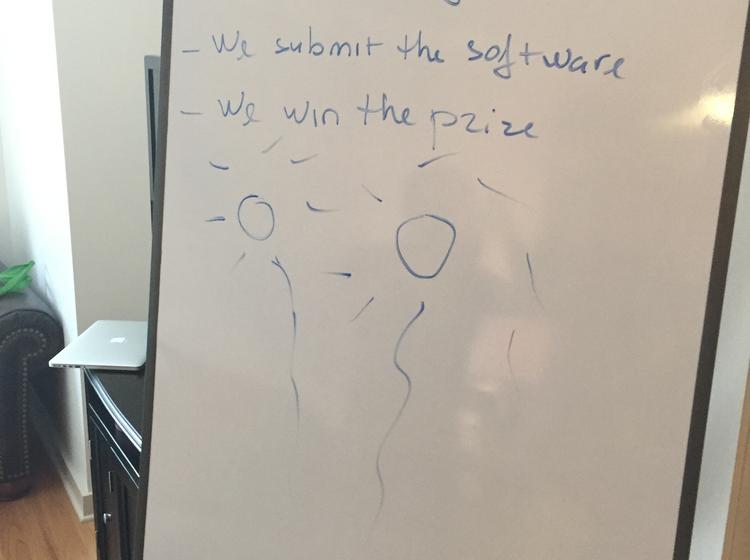 - We submit the software
- We win the prize